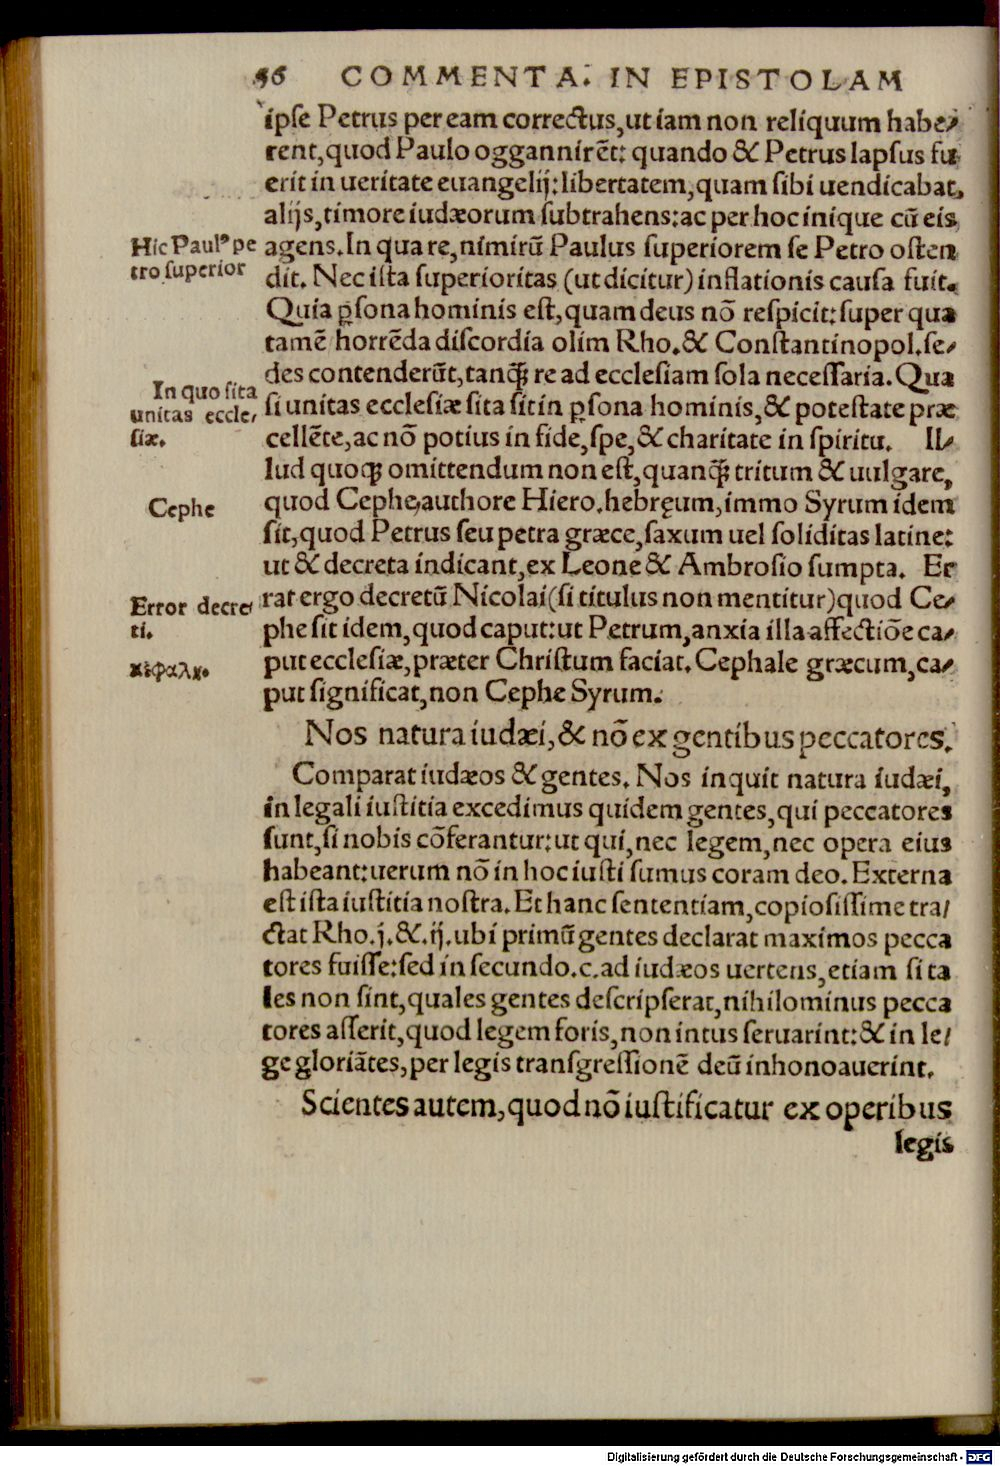 56 COMMENTA. IN EPISTOLAM
ipſe Petrus per eam correctus, ut iam non reliquum habe⸗
rent, quod Paulo oggannirēt: quando & Petrus lapſus fu
erit in ueritate euangelij: libertatem, quam ſibi uendicabat,
alijs, timore iudæorum ſubtrahens: ac per hoc inique cū eis
Hic Paulꝰ pe
tro ſuperior
agens. In qua re, nimirū Paulus ſuperiorem ſe Petro oſten
dit. Nec iſta ſuperioritas (ut dicitur) inflationis cauſa fuit.
Quia ꝑſona hominis eſt, quam deus nō reſpicit: ſuper qua
tamē horrēda diſcordia olim Rho. & Conſtantinopol. ſe⸗
des contenderūt, tanꝙ̃ re ad eccleſiam ſola neceſſaria. Qua
In quo ſita
unitas eccle⸗
ſiæ.
ſi unitas eccleſiæ ſita ſit in ꝑſona hominis, & poteſtate præ
cellēte, ac nō potius in fide, ſpe, & charitate in ſpiritu. Il⸗
lud quoqꝫ omittendum non eſt, quanꝙ̃ tritum & uulgare,
Cephe
quod Cephe, authore Hiero. hebręum, immo Syrum idem
ſit, quod Petrus ſeu petra græce, ſaxum uel ſoliditas latine:
ut & decreta indicant, ex Leone & Ambroſio ſumpta. Er
Error decre⸗
ti.
rat ergo decretū Nicolai (ſi titulus non mentitur) quod Ce⸗
phe ſit idem, quod caput: ut Petrum, anxia illa affectiōe ca⸗
κεφαλη.
put eccleſiæ, præter Chriſtum faciat. Cephale græcum, ca⸗
put ſignificat, non Cephe Syrum.
Nos natura iudæi, & nō ex gentibus peccatores.
Comparat iudæos & gentes. Nos inquit natura iudæi,
in legali iuſtitia excedimus quidem gentes, qui peccatores
ſunt, ſi nobis cōferantur: ut qui, nec legem, nec opera eius
habeant: uerum nō in hoc iuſti ſumus coram deo. Externa
eſt iſta iuſtitia noſtra. Et hanc ſententiam, copioſiſſime tra⸗
ctat Rho. j. &. ij. ubi primū gentes declarat maximos pecca
tores fuiſſe: ſed in ſecundo. c. ad iudæos uertens, etiam ſi ta
les non ſint, quales gentes deſcripſerat, nihilominus pecca
tores aſſerit, quod legem foris, non intus ſeruarint: & in le⸗
ge gloriātes, per legis tranſgreſſionē deū inhonoauerint.
Scientes autem, quod nō iuſtificatur ex operibus
legis
Digitalisierung gefördert durch die Deutsche Forschungsgemeinschaft - DFG